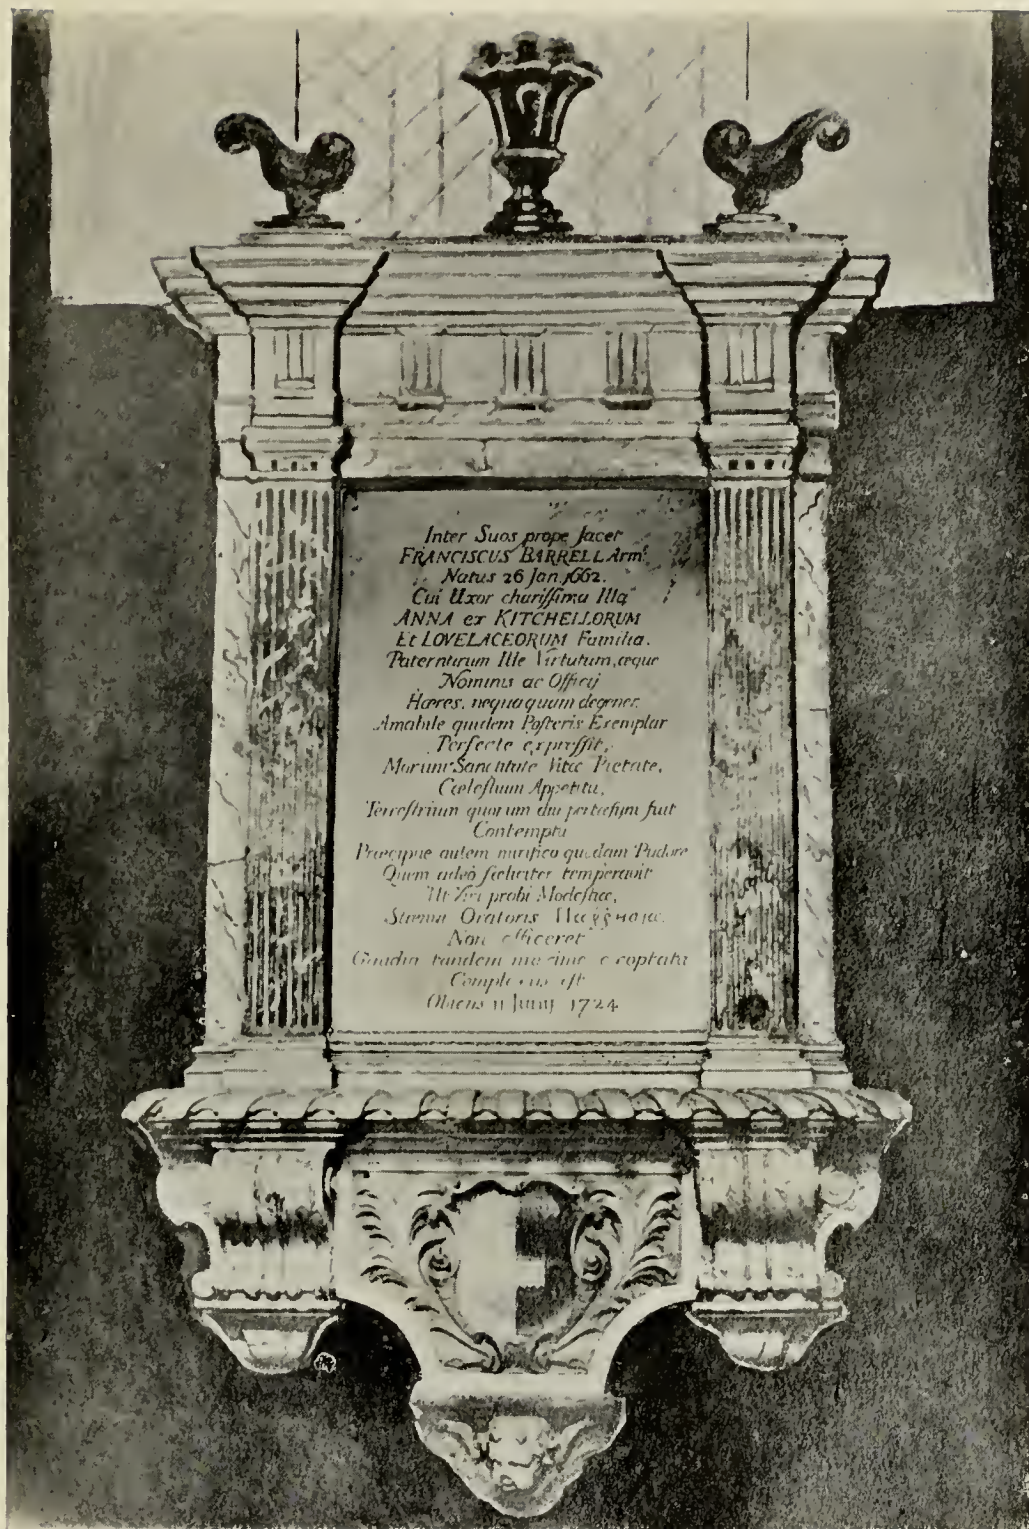 Inter Suos prope Jacet
FRANCISCUS BARRELL Armr
Natus 26 Jan. 1662.
Cui Uxor charissima Illa
ANNA ex KITCHELLORUM
Et LOVELACEORUM Familia.
Paternarum Ille Virtutum, æque
Nominis ac Officij
Hæres, nequaquam degener,
Amabile quidem Posteris Exemplar
Perfecte expressit,
Morum Sanctitate Vitæ Pietate,
Cœlestium Appetitu,
Terrestrium quorum diu pertæsum fuit
Contemptu
Præcipue autem mirifico quodam Pudore
Quem adeò feliciter temperavit
Ut Viri probi Modestiæ,
Oratoris
Non officeret
Gaudia tandem maxime exoptata
Complexus est
Obiens 11 Junij 1724